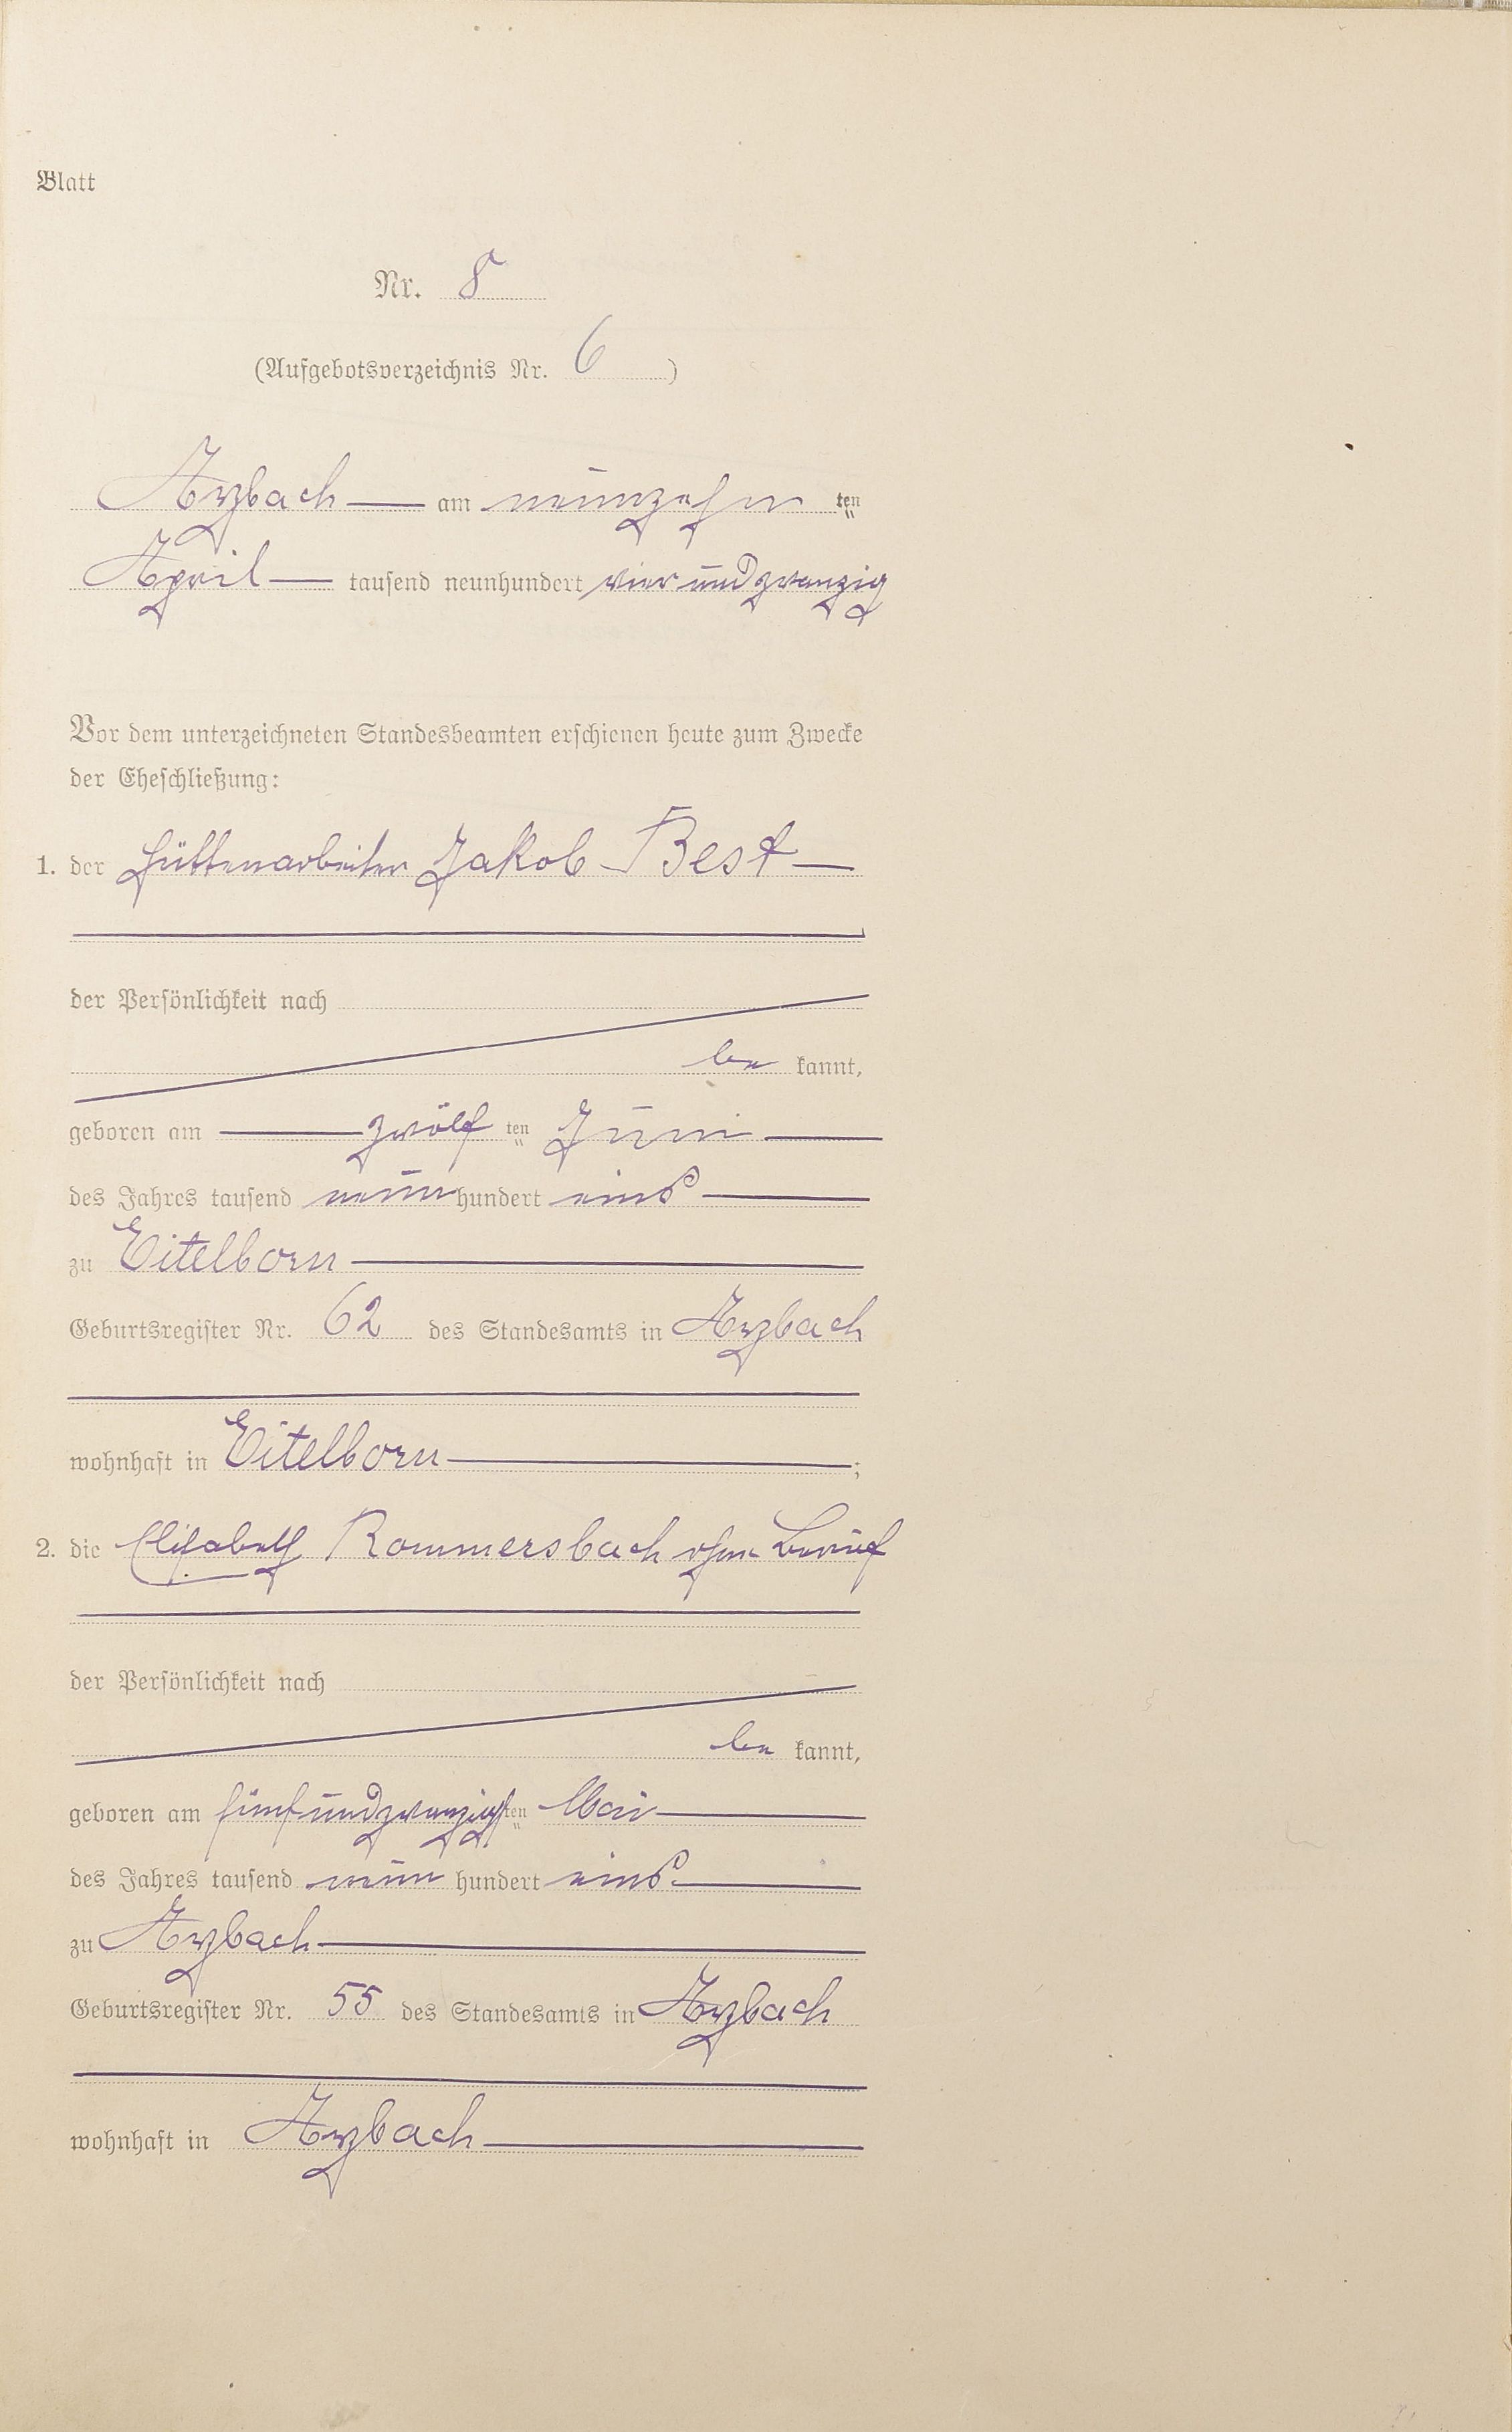 Blatt
Nr. 8
(Aufgebotsverzeichnis Nr. 6 )
Arzbach — am neunzehn ten
April — tausend neunhundert vierundzwanzig
Vor dem unterzeichneten Standesbeamten erschienen heute zum Zwecke
der Eheschließung:
1. der Hüttenarbeiter Jakob Best —
der Persönlichkeit nach
be kannt,
geboren am — zwölf ten Juni —
des Jahres tausend neun hundert eins —
zu Eitelborn —
Geburtsregister Nr. 62 des Standesamts in Arzbach
wohnhaft in Eitelborn — ;
2. die Elisabeth Rommersbach ohne Beruf
der Persönlichkeit nach
be kannt,
geboren am fünfundzwanzigsten Mai —
des Jahres tausend neun hundert eins —
zu Arzbach —
Geburtsregister Nr. 55 des Standesamts in Arzbach
wohnhaft in Arzbach —